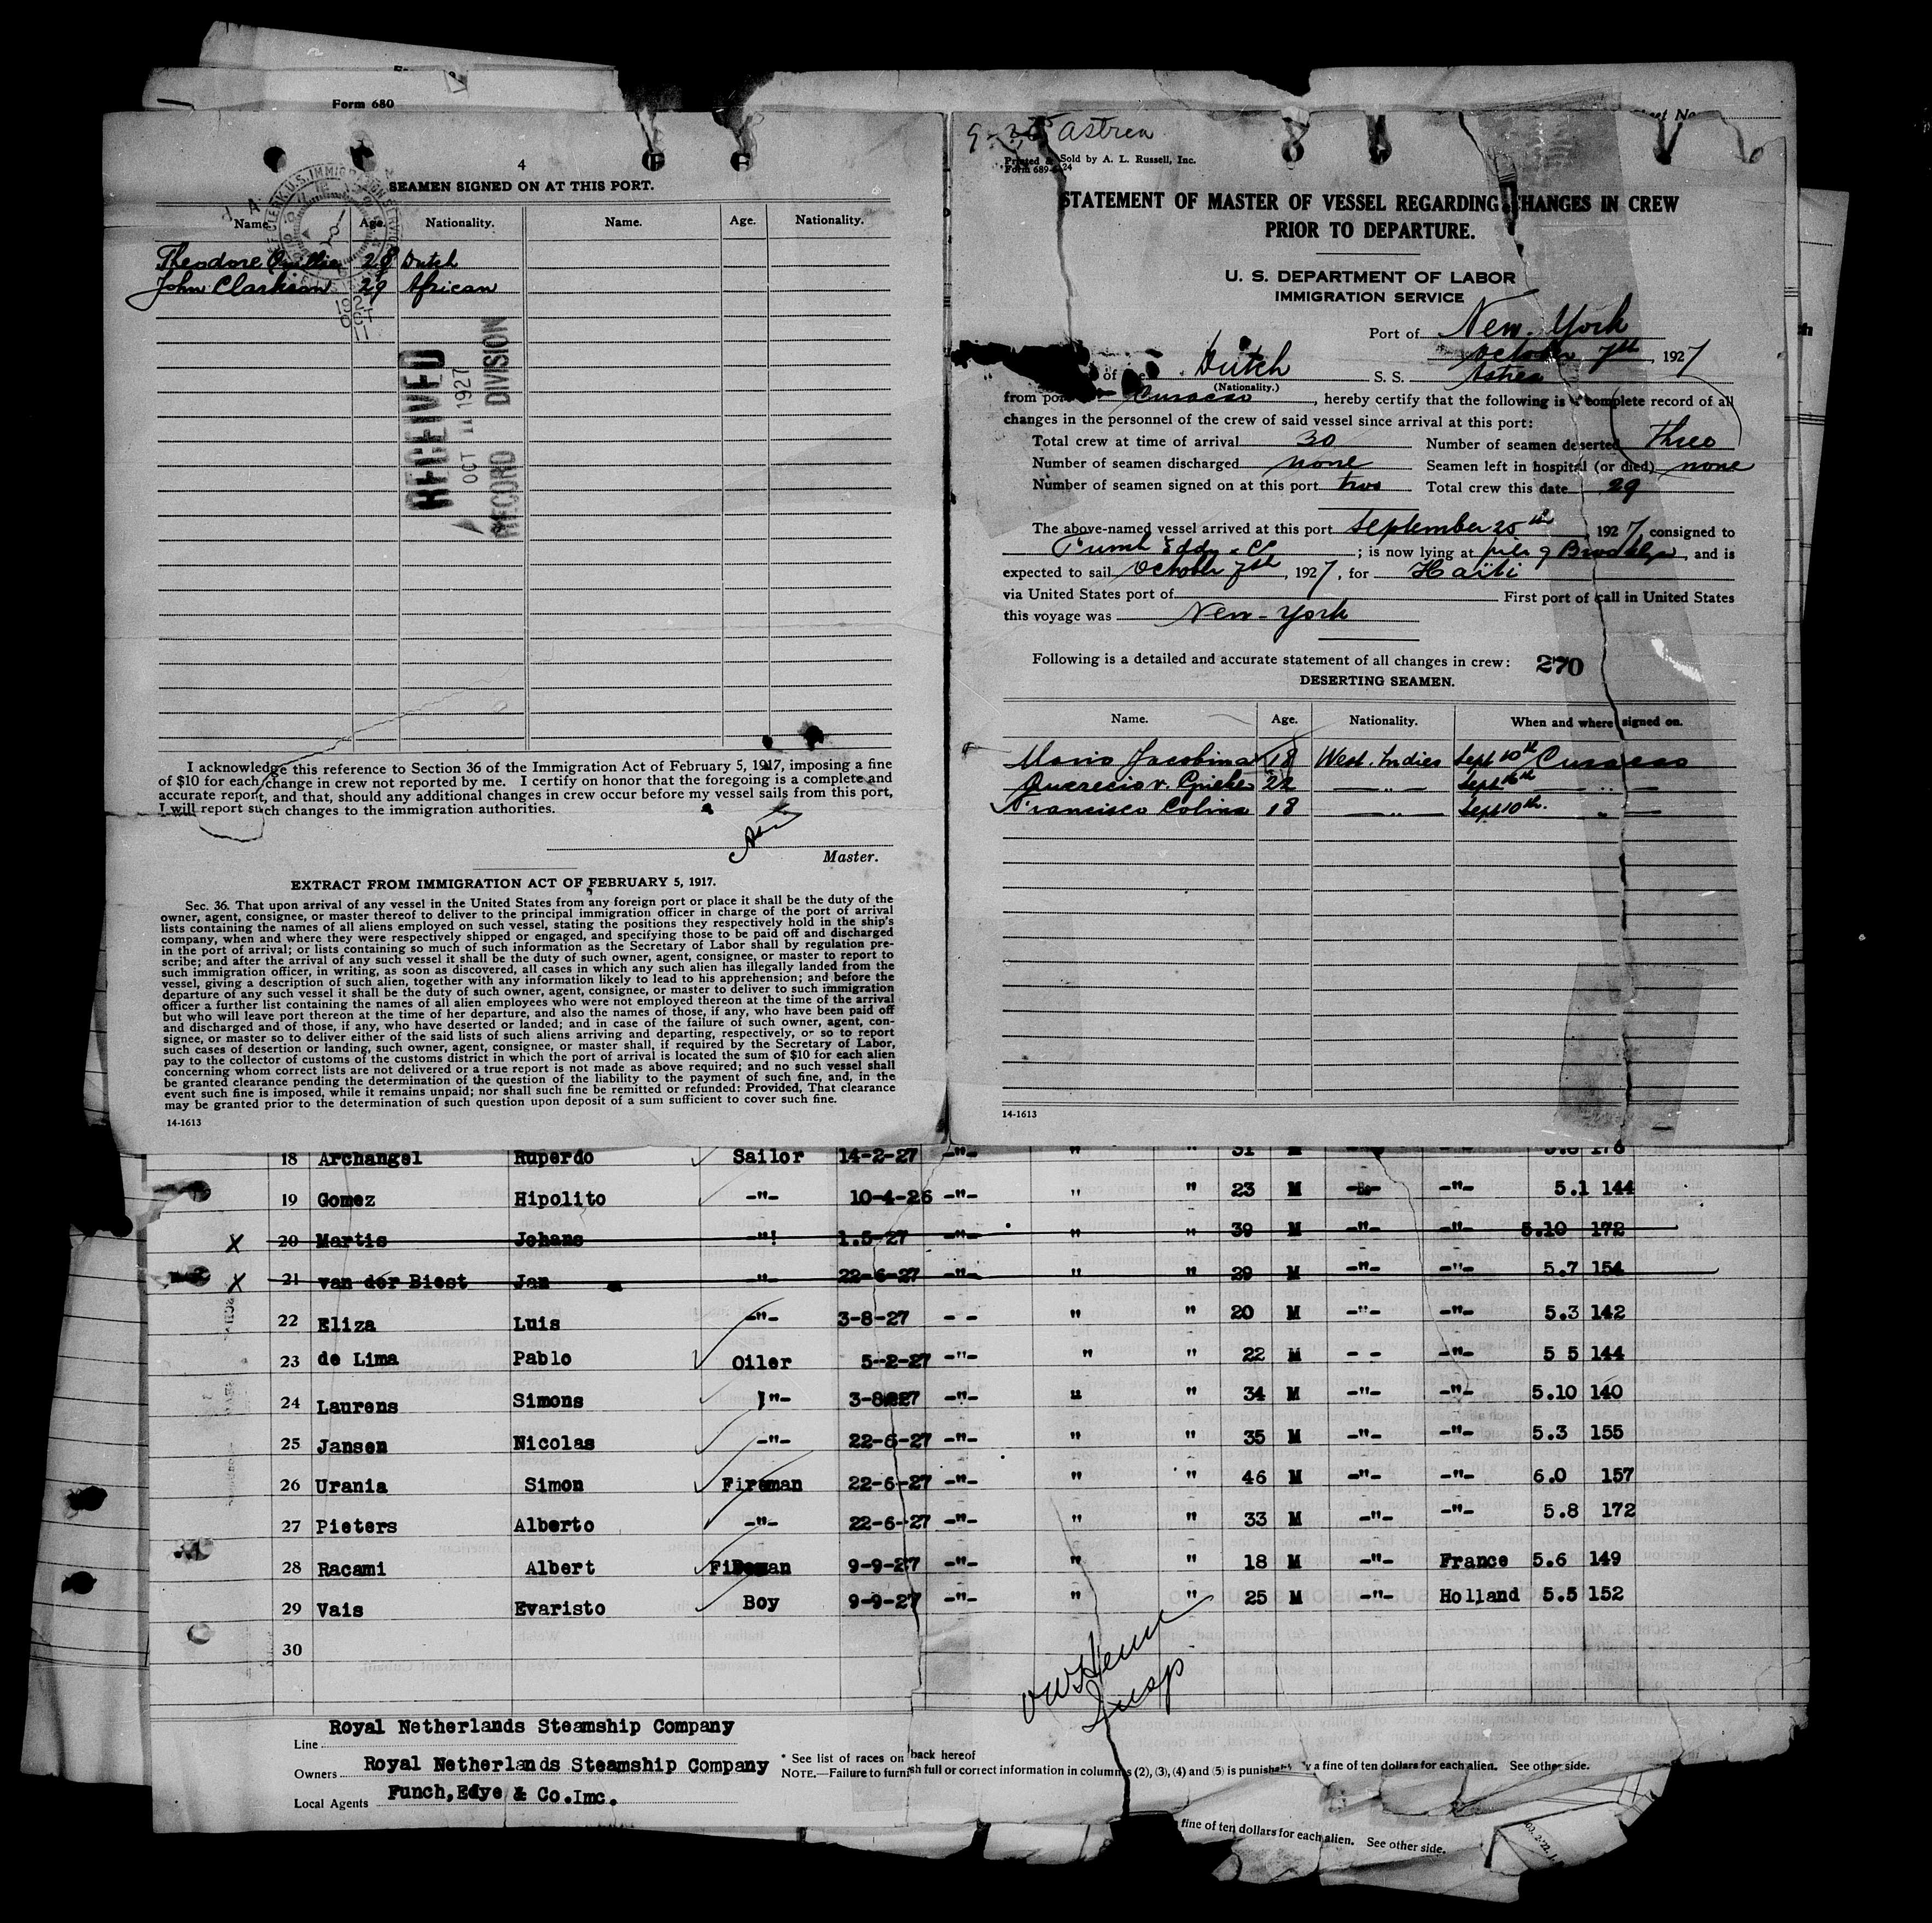 Form 680
4
SEAMEN SIGNED ON AT THIS PORT.
Name. Age. Nationality. Name. Age. Nationality.
Theodore 28 Dutch
John Clarkson 29 African
RECEIVED
OCT 11 1927
RECORD DIVISION
I acknowledge this reference to Section 36 of the Immigration Act of February 5, 1917, imposing a fine
of $10 for each change in crew not reported by me. I certify on honor that the foregoing is a complete and
accurate report, and that, should any additional changes in crew occur before my vessel sails from this port,
I will report such changes to the immigration authorities.
Master.
EXTRACT FROM IMMIGRATION ACT OF FEBRUARY 5, 1917.
Sec. 36. That upon arrival of any vessel in the United States from any foreign port or place it shall be the duty of the
owner, agent, consignee, or master thereof to deliver to the principal immigration officer in charge of the port of arrival
lists containing the names of all aliens employed on such vessel, stating the positions they respectively hold in the ship's
company, when and where they were respectively shipped or engaged, and specifying those to be paid off and discharged
in the port of arrival; or lists containing so much of such information as the Secretary of Labor shall by regulation pre-
scribe; and after the arrival of any such vessel it shall be the duty of such owner, agent, consignee, or master to report to
such immigration officer, in writing, as soon as discovered, all cases in which any such alien has illegally landed from the
vessel, giving a description of such alien, together with any information likely to lead to his apprehension; and before the
departure of any such vessel it shall be the duty of such owner, agent, consignee, or master to deliver to such immigration
officer a further list containing the names of all alien employees who were not employed thereon at the time of the arrival
but who will leave port thereon at the time of her departure, and also the names of those, if any, who have been paid off
and discharged and of those, if any, who have deserted or landed; and in case of the failure of such owner, agent, con-
signee, or master so to deliver either of the said lists of such aliens arriving and departing, respectively, or so to report
such cases of desertion or landing, such owner, agent, consignee, or master shall, if required by the Secretary of Labor,
pay to the collector of customs of the customs district in which the port of arrival is located the sum of $10 for each alien
concerning whom correct lists are not delivered or a true report is not made as above required; and no such vessel shall
be granted clearance pending the determination of the question of the liability to the payment of such fine, and, in the
event such fine is imposed, while it remains unpaid; nor shall such fine be remitted or refunded: Provided, That clearance
may be granted prior to the determination of such question upon deposit of a sum sufficient to cover such fine.
14-1613
Astrea
Printed & Sold by A. L. Russell, Inc.
Form 689
STATEMENT OF MASTER OF VESSEL REGARDING CHANGES IN CREW
PRIOR TO DEPARTURE.
U. S. DEPARTMENT OF LABOR
IMMIGRATION SERVICE
Port of New-York
October 7th, 1927
of Dutch S. S. Astrea
(Nationality.)
from port Curacao, hereby certify that the following is a complete record of all
changes in the personnel of the crew of said vessel since arrival at this port:
Total crew at time of arrival 30 Number of seamen deserted three
Number of seamen discharged none Seamen left in hospital (or died) none
Number of seamen signed on at this port two Total crew this date 29
The above-named vessel arrived at this port September 25th, 1927, consigned to
; is now lying at pier 9 Brooklyn, and is
expected to sail October 7th, 1927, for Haïti
via United States port of First port of call in United States
this voyage was New-York
Following is a detailed and accurate statement of all changes in crew: 270
DESERTING SEAMEN.
Name. Age. Nationality. When and where signed on.
Mario Jacobina 18 West. Indies Sept 10th Curacao
22 —„— Sept 16th —„—
Francisco Colina 18 —„— Sept 10th. —„—
14-1613
18 Archangel Ruperdo Sailor 14-2-27 -"- " " 31 M
19 Gomez Hipolito -"- 10-4-26 -"- " " 23 M -"- -"- 5.1 144
20 Martis Johans -"! 1.5-27 -"- " " 39 M -"- -"- 5.10 172
21 van der Biest Jan -"- 22-6-27 -"- " " 29 M -"- -"- 5.7 154
22 Eliza Luis -"- 3-8-27 - - " " 20 M -"- -"- 5.3 142
23 de Lima Pablo Oiler 5-2-27 -"- " " 22 M - - -"- 5 5 144
24 Laurens Simons -"- 3-8-27 -"- " " 34 M -"- -"- 5.10 140
25 Jansen Nicolas -"- 22-6-27 -"- " " 35 M -"- -"- 5.3 155
26 Urania Simon Fireman 22-6-27 -"- " " 46 M -"- -"- 6.0 157
27 Pieters Alberto -"- 22-6-27 -"- " " 33 M -"- -"- 5.8 172
28 Racami Albert Fireman 9-9-27 -"- " " 18 M -"- France 5.6 149
29 Vais Evaristo Boy 9-9-27 -"- " " 25 M -"- Holland 5.5 152
30
Insp
Line Royal Netherlands Steamship Company
Owners Royal Netherlands Steamship Company
Local Agents Funch, Edye & Co. Inc.
* See list of races on back hereof
NOTE.—Failure to furnish full or correct information in columns (2), (3), (4) and (5) is punishable by a fine of ten dollars for each alien. See other side.
fine of ten dollars for each alien. See other side.